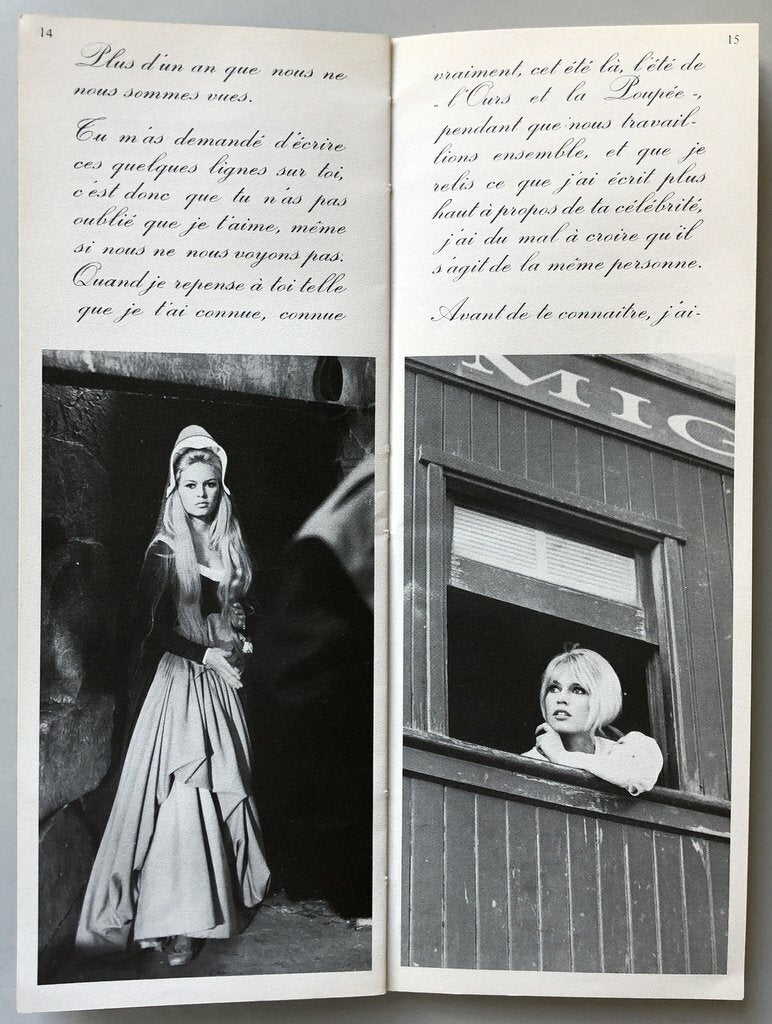 14
Plus d'un an que nous ne
nous sommes vues.
Tu m'as demandé d'écrire
ces quelques lignes sur toi,
c'est donc que tu n'as pas
oublié que je t'aime, même
si nous ne nous voyons pas.
Quand je repense à toi telle
que je t'ai connue, connue
15
vraiment, cet été là, l'été de
"l'Ours et la Poupée",
pendant que nous travail-
lions ensemble, et que je
relis ce que j'ai écrit plus
haut à propos de ta célébrité,
j'ai du mal à croire qu'il
s'agit de la même personne.
Avant de te connaitre, j'ai-
MIG